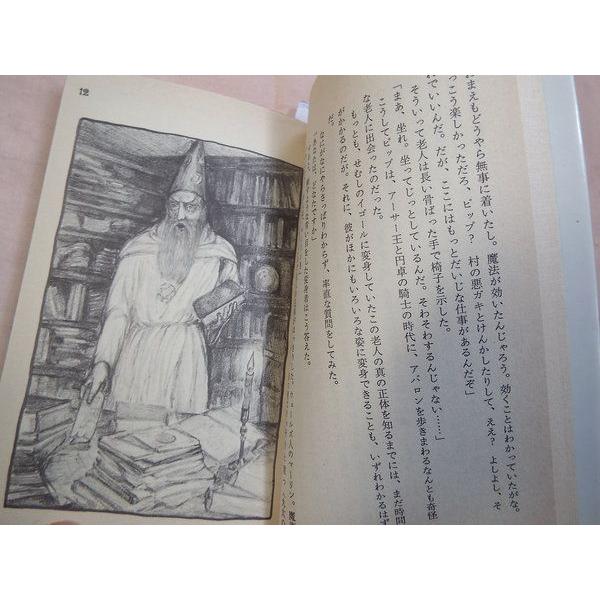 にまえもどうやら無事に着いたし。魔法が効いたんじゃろう。効くことはわかっていたがな。
っこう楽しかっただろ、ピップ？　村の悪ガキとけんかしたりして、ええ？　よしよし、そ
れでいいんだ。だが、ここにはもっとだいじな仕事があるんだぞ」
そういって老人は長い骨ばった手で椅子を示した。
「まあ、坐れ。坐ってじっとしているんだ。そわそわするんじゃない……」
こうしてピップは、アーサー王と円卓の騎士の時代に、アバロンを歩きまわるなんとも奇怪
な老人に出会ったのだった。
もっとも、せむしのイゴールに変身していたこの老人の真の正体を知るまでには、まだ時間
がかかるのだが。それに、彼がほかにもいろいろな姿に変身できることも、いずれわかるはず
だ。
なにがなにやらさっぱりわからず、率直な質問をしてみた。
「あなたは、どなたですか」
目をした変身者はこう答えた。
ウェールズ人のマーリン。魔
12